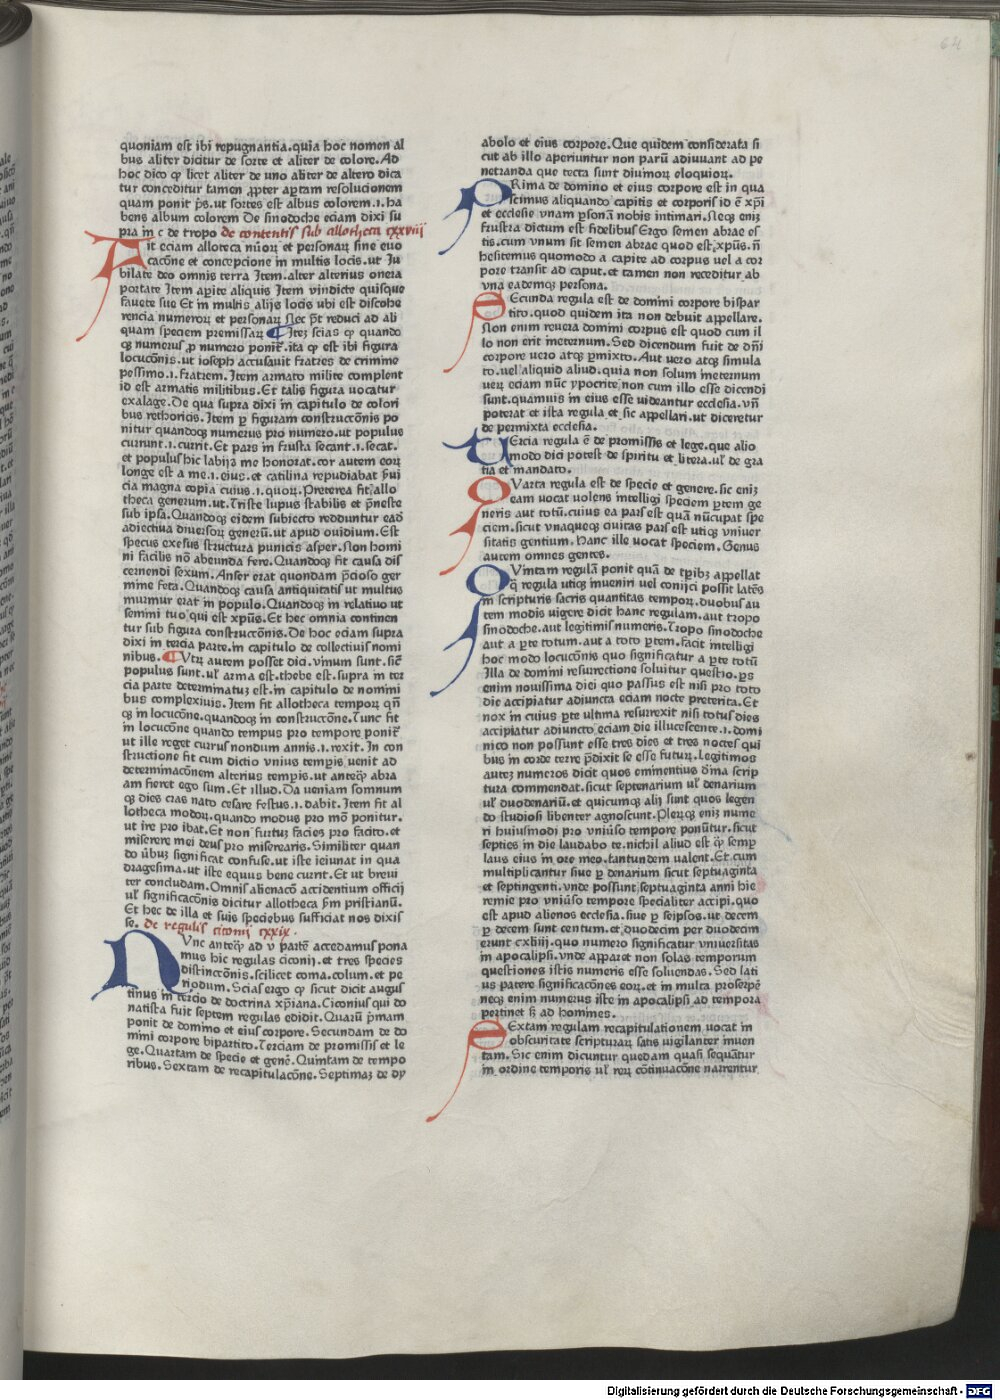 64
quoniam est ibi repugnantia. quia hoc nomen al
bus aliter dicitur de sorte et aliter de colore. Ad
hoc dico qꝫ licet aliter de uno aliter de altero dica
tur conceditur tamen ꝓpter aptam resolucionem
quam ponit p̄s. ut sortes est albus colorem .i. ha
bens album colorem De sinodoche eciam dixi su
pra in c de tropo de contentis sub allotheca cxxviij
Fit eciam alloteca nūoꝝ et personaꝝ sine euo
cacōne et concepcione in multis locis. ut Ju
bilate deo omnis terra Item. alter alterius onera
portate Item aꝑite aliquis Item vindicte quisque
fauete sue Et in multis alijs locis ubi est discohe
rencia numeroꝝ et personaꝝ Nec pt̄ reduci ad ali
quam speciem premissaꝝ ¶ Iteꝫ scias qꝫ quando
qꝫ numerus ꝓ numero poniť. ita qꝫ est ibi figura
locucōnis. ut ioseph accusauit fratres de crimine
pessimo .i. fratrem. Item armato milite complent
id est armatis militibus. Et talis figura uocatur
exalage. De qua supra dixi in capitulo de colori
bus rethoricis. Item ꝑ figuram constructcōnis po
nitur quandoqꝫ numerus pro numero. ut populus
currunt .i. currit. Et pars in frusta secant .i. secat.
et populus hic labijs me honorat. cor autem eoꝝ
longe est a me .i. eius. et catilina repudiabat p̄ui
cia magna copia cuius .i. quoꝝ. Preterea fit allo
theca generum. ut. Triste lupus stabilis et p̄neste
sub ipsa. Quandoqꝫ eidem subiecto redduntur ead̄
adiectiua diuersoꝝ generū. ut apud ouidium. Est
specus exesus structura punicis asper. Non homi
ni facilis nō abeunda fere. Quandoqꝫ fit causa dis
cernendi sexum. Anser erat quondam p̄cioso ger
mine feta. Quandoqꝫ causa antiquitatis ut multus
murmur erat in populo. Quandoqꝫ in relatiuo ut
semini tuo qui est xp̄us. Et hec omnia continen
tur sub figura construccōnis. De hoc eciam supra
dixi in tercia parte. in capitulo de collectiuis nomi
nibus. ¶ Utꝝ autem posset dici. vinum sunt. sic̄
populus sunt. uľ arma est. thebe est. supra in ter
cia parte determinatuꝫ est. in capitulo de nomini
bus complexiuis. Item fit allotheca tempoꝝ qn̄
qꝫ in locucōne. quandoqꝫ in construccōne. Tunc fit
in locucōne quando tempus pro tempore poniť
ut ille reget currus nondum annis .i. rexit. In con
structione fit cum dictio vnius tempis, uenit ad
determinacōnem alterius tempis. ut anteqꝫ abra
am fieret ego sum. Et illud. Da ueniam somnum
qꝫ dies cras nato cesare festus .i. dabit. Item fit al
lotheca modoꝝ. quando modus pro mō ponitur.
ut ire pro ibat. Et non furtuꝫ facies pro facito. et
miserere mei deus pro miserearis. Similiter quan
do ūbuꝫ significat confuse. ut iste ieiunat in qua
dragesima. ut iste equus bene currit. Et ut breui
ter concludam. Omnis alienacō accidentium officij
uľ significacōnis dicitur allotheca s̄m pristianū.
Et hec de illa et suis speciebus sufficiat nos dixis
se. de regulis ciconij cxxix.
Nunc anteqꝫ ad v partē accedamus pona
mus hic regulas ciconij. et tres species
distinctōnis. scilicet coma. colum. et pe
riodum. Scias ergo qꝫ sicut dicit augus
tinus in tercio de doctrina xp̄iana. Ciconius qui do
natista fuit septem regulas edidit. Quarū p̄mam
ponit de domino et eius corpore. Secundam de do
mini corpore bipartito. Terciam de promissis et le
ge. Quartam de specie et genē. Quintam de tempo
ribus. Sextam de recapitulacōne. Septimaꝫ de dy
abolo et eius corpore. Que quidem considerata si
cut ab illo aperiuntur non parū adiuuant ad pe
netranda que tecta sunt diuinoꝝ eloquioꝝ.
Prima de domino et eius corpore est in qua
scimus aliquando capitis et corporis id ē xp̄i
et ecclesie vnam ꝑsonā nobis intimari. Neqꝫ eniꝫ
frustra dictum est fidelibus Ergo semen abrae es
tis. cum vnum sit semen abrae quod est xp̄us. n̄
hesitemus quomodo a capite ad corpus vel a cor
pore transit ad caput. et tamen non receditur ab
vna eademqꝫ persona.
Secunda regula est de domini corpore bipar
tito. quod quidem ita non debuit appellare.
Non enim reuera domini corpus est quod cum il
lo non erit ineternum. Sed dicendum fuit de dn̄i
corpore uero atqꝫ ꝑmixto. Aut uero atqꝫ simula
to. uel aliquid aliud. quia non solum ineternum
ueꝝ eciam nūc ypocrite non cum illo esse dicendi
sunt. quamuis in eius esse uideantur ecclesia. vn̄
poterat et ista regula et sic appellari. ut diceretur
de permixta ecclesia.
Tercia regula ē de promissis et lege. que alio
modo dici potest de spiritu et litera. uľ de gra
tia et mandato.
Quarta regula est de specie et genere. sic eniꝫ
eam uocat uolens intelligi speciem ꝑtem ge
neris aut totū. cuius ea pars est quā nūcupat spe
ciem. sicut vnaqueqꝫ ciuitas pars est utiqꝫ vniuer
sitatis gentium. Hanc ille vocat speciem. Genus
autem omnes gentes.
Quintam regulā ponit quā de tp̄ibꝫ appellat
q̄ regula utiqꝫ inueniri uel conijci possit latēs
in scripturis sacris quantitas tempoꝝ. duobus au
tem modis uigere dicit hanc regulam. aut tropo
sinodoche. aut legitimis numeris. Tropo sinodoche
aut a ꝑte totum. aut a toto ꝑtem. facit intelligi
hoc modo locucōnis quo significatur a ꝑte totū
Illa de domini resurrectione soluitur questio. ps
enim nouissima diei quo passus est nisi pro toto
die accipiatur adiuncta eciam nocte preterita. Et
nox in cuius ꝑte ultima resurrexit nisi totus dies
accipiatur adiuncto eciam die illucescente .i. domi
nico non possunt esse tres dies et tres noctes qui
bus in corde terre p̄dixit se esse futuꝝ. Legitimos
auteꝫ numeros dicit quos eminentius diīna scrip
tura commendat. sicut septenarium uľ denarium
uľ duodenariū. et quicumqꝫ alij sunt quos legen
do studiosi libenter agnoscunt. Pleriqꝫ eniꝫ nume
ri huiusmodi pro vniūso tempore ponūtur. sicut
septies in die laudabo te. nichil aliud est qꝫ semꝑ
laus eius in ore meo. tantundem ualent. Et cum
multiplicantur siue ꝑ denarium sicut septuaginta
et septingenti. vnde possunt septuaginta anni hie
remie pro vniūso tempore specialiter accipi. quo
est apud alienos ecclesia. siue ꝑ seipsos. ut decem
ꝑ decem sunt centum. et duodecim per duodecim
erunt cxliiij. quo numero significatur vniuersitas
in apocalipsi. vnde apparet non solas temporum
questiones istis numeris esse soluendas. Sed lati
us patere significacōnes eoꝝ. et in multa proserpē
neqꝫ enim numerus iste in apocalipsi ad tempora
pertinet sꝫ ad homines.
Sextam regulam recapitulationem uocat in
obscuritate scripturaꝝ satis uigilanter inuen
tam. Sic enim dicuntur quedam quasi sequātur
in ordine temporis uľ reꝝ cōtinuacōne narrentur
Digitalisierung gefördert durch die Deutsche Forschungsgemeinschaft - DFG